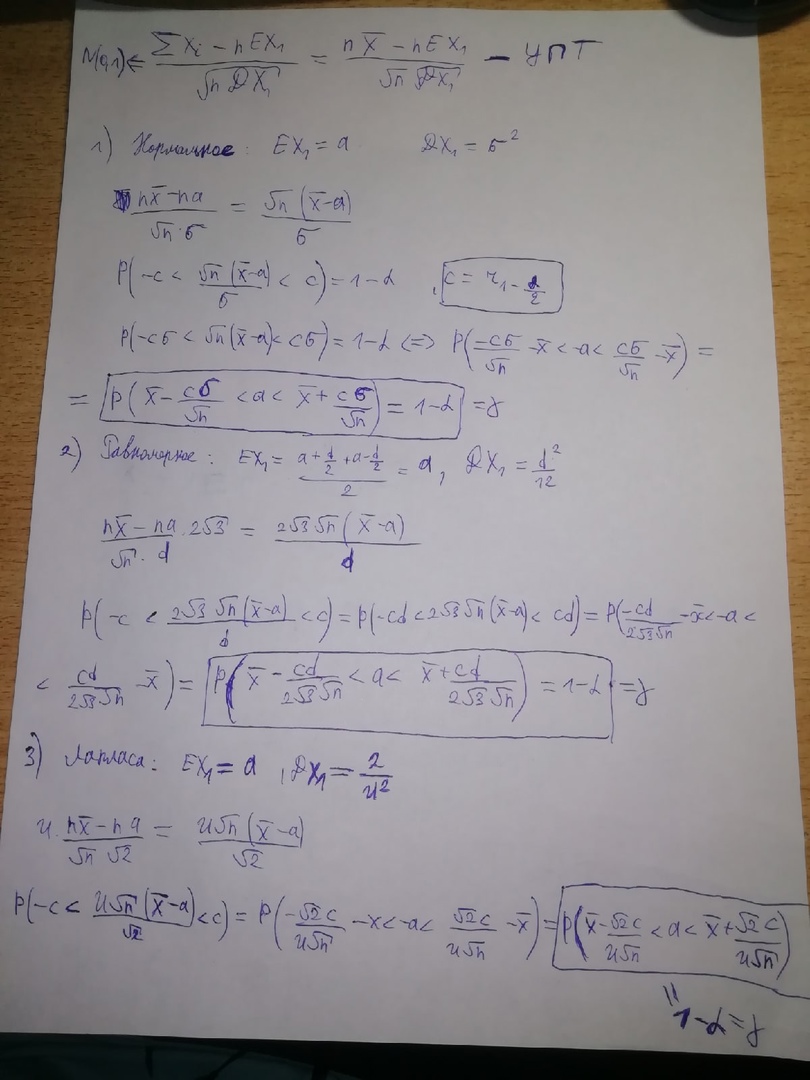 N(0,1) ⇐ (∑ Xᵢ − nEX₁)/(√n √DX₁) = (n X̄ − nEX₁)/(√n √DX₁) − ЦПТ
1) Нормальное: EX₁ = a DX₁ = σ²
(nX̄ − na)/(√n·σ) = √n (X̄−a)/σ
P(−c < √n (X̄−a)/σ < c) = 1−α , c = τ₁₋α/₂
P(−cσ < √n(X̄−a) < cσ) = 1−α ⟺ P(−cσ/√n − X̄ < −a < cσ/√n − X̄) =
= P(X̄ − cσ/√n < a < X̄ + cσ/√n) = 1−α = γ
2) Равномерное: EX₁ = (a + d/2 + a − d/2)/2 = a, DX₁ = d²/12
(nX̄ − na)/(√n · d) · 2√3 = 2√3 √n (X̄−a)/d
P(−c < 2√3 √n(X̄−a)/d < c) = P(−cd < 2√3 √n(X̄−a) < cd) = P(−cd/(2√3√n) − X̄ < −a <
< cd/(2√3√n) − X̄) = P(X̄ − cd/(2√3√n) < a < X̄ + cd/(2√3√n)) = 1−α = γ
3) Лапласа: EX₁ = a , DX₁ = 2/u²
u · (nX̄ − na)/(√n √2) = u√n (X̄−a)/√2
P(−c < u√n (X̄−a)/√2 < c) = P(−√2 c/(u√n) − x < −a < √2 c/(u√n) − X̄) = P(X̄ − √2 c/(u√n) < a < X̄ + √2 c/(u√n))
"
1−α = γ